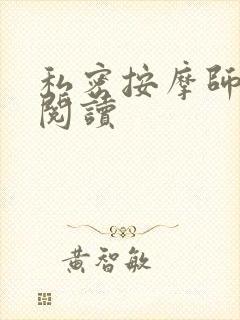 私密按摩師
閱讀
黃智敏